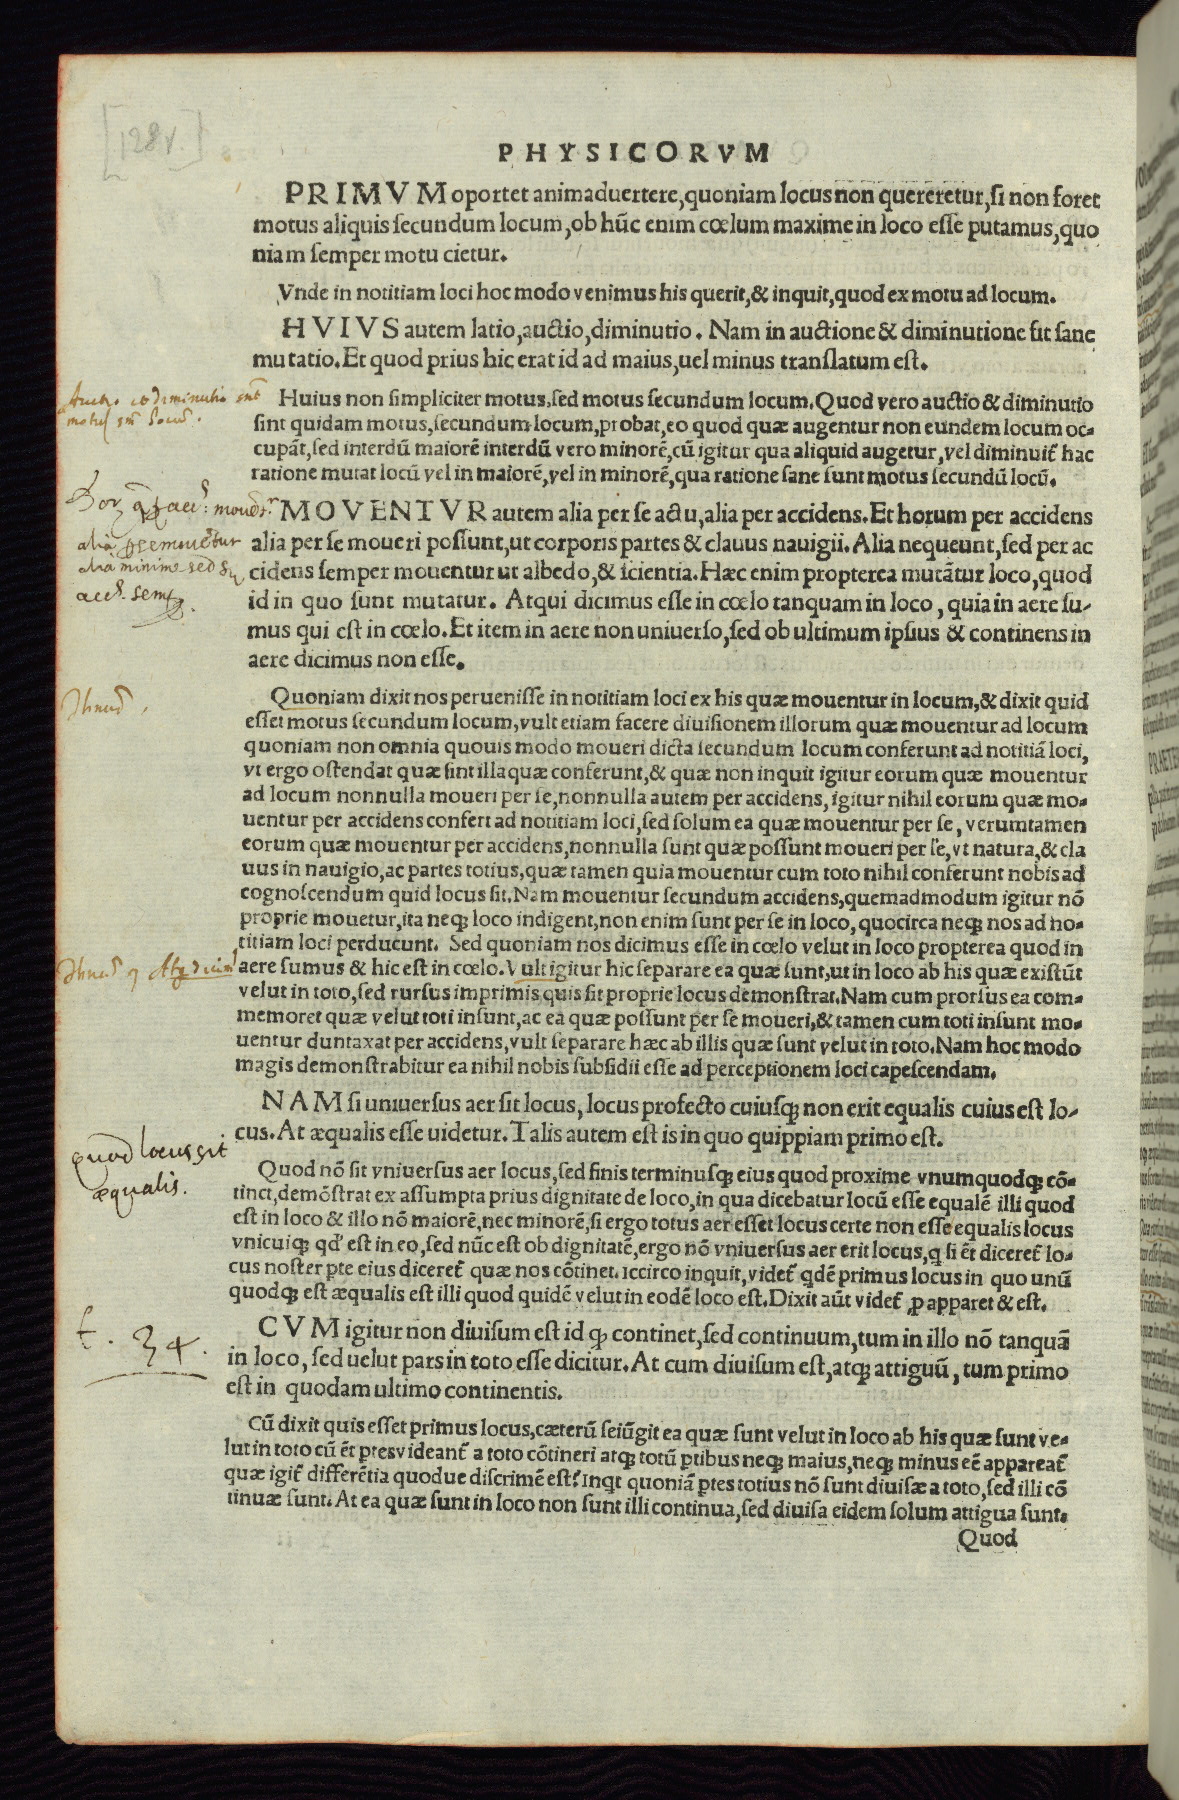 [128v.]
PHYSICORVM
PRIMVM oportet animaduertere,quoniam locus non quereretur,si non foret
motus aliquis secundum locum,ob hũc enim cœlum maxime in loco esse putamus,quo
niam semper motu cietur.
Vnde in notitiam loci hoc modo venimus his querit,& inquit,quod ex motu ad locum.
HVIVS autem latio,auctio,diminutio. Nam in auctione & diminutione fit sane
mutatio.Et quod prius hic erat id ad maius,uel minus translatum est.
Auctio et diminutio sũt
motus scđm locum.
Huius non simpliciter motus,sed motus secundum locum.Quod vero auctio & diminutio
sint quidam motus,secundum locum,probat,eo quod quæ augentur non eundem locum oc-
cupãt,sed interdũ maiorẽ interdũ vero minorẽ,cũ igitur qua aliquid augetur,vel diminuit̃ hac
ratione mutat locũ vel in maiorẽ,vel in minorẽ,qua ratione sane sunt motus secundũ locũ.
alia per se mouẽtur
alia minime sed
MOVENTVR autem alia per se actu,alia per accidens.Et horum per accidens
alia per se moueri possunt,ut corporis partes & clauus nauigii.Alia nequeunt,sed per ac
cidens semper mouentur ut albedo,& scientia.Hæc enim propterea mutãtur loco,quod
id in quo sunt mutatur. Atqui dicimus esse in cœlo tanquam in loco, quia in aere su-
mus qui est in cœlo.Et item in aere non uniuerso,sed ob ultimum ipsius & continens in
aere dicimus non esse.
Quoniam dixit nos peruenisse in notitiam loci ex his quæ mouentur in locum,& dixit quid
esset motus secundum locum,vult etiam facere diuisionem illorum quæ mouentur ad locum
quoniam non omnia quouis modo moueri dicta secundum locum conferunt ad notitiã loci,
vt ergo ostendat quæ sint illa quæ conferunt,& quæ non inquit igitur eorum quæ mouentur
ad locum nonnulla moueri per se,nonnulla autem per accidens, igitur nihil eorum quæ mo-
uentur per accidens confert ad notitiam loci,sed solum ea quæ mouentur per se, verumtamen
eorum quæ mouentur per accidens,nonnulla sunt quæ possunt moueri per se,vt natura,& cla
uus in nauigio,ac partes totius,quæ tamen quia mouentur cum toto nihil conferunt nobis ad
cognoscendum quid locus sit.Nam mouentur secundum accidens,quemadmodum igitur nõ
proprie mouetur,ita neqꝫ loco indigent,non enim sunt per se in loco, quocirca neqꝫ nos ad no-
titiam loci perducunt. Sed quoniam nos dicimus esse in cœlo velut in loco propterea quod in
aere sumus & hic est in cœlo.Vult igitur hic separare ea quæ sunt,ut in loco ab his quæ existũt
velut in toto,sed rursus imprimis quis sit proprie locus demonstrat.Nam cum prorsus ea com-
memoret quæ velut toti insunt,ac ea quæ possunt per se moueri,& tamen cum toti insunt mo-
uentur duntaxat per accidens,vult separare hæc ab illis quæ sunt velut in toto.Nam hoc modo
magis demonstrabitur ea nihil nobis subsidii esse ad perceptionem loci capescendam.
NAM si uniuersus aer sit locus, locus profecto cuiusqꝫ non erit equalis cuius est lo-
cus.At æqualis esse uidetur.Talis autem est is in quo quippiam primo est.
quod locus sit
æqualis.
Quod nõ sit vniuersus aer locus,sed finis terminusqꝫ eius quod proxime vnumquodqꝫ cõ-
tinet,demõstrat ex assumpta prius dignitate de loco,in qua dicebatur locũ esse equalẽ illi quod
est in loco & illo nõ maiorẽ,nec minorẽ,si ergo totus aer esset locus certe non esse equalis locus
vnicuiqꝫ qđ est in eo,sed nũc est ob dignitatẽ,ergo nõ vniuersus aer erit locus,q si ẽt diceret̃ lo-
cus noster ꝑte eius diceret̃ quæ nos cõtinet.iccirco inquit,videt̃ qdẽ primus locus in quo unũ
quodqꝫ est æqualis est illi quod quidẽ velut in eodẽ loco est.Dixit aũt videt̃ ꝓ apparet & est.
t. 34.
CVM igitur non diuisum est id qꝫ continet,sed continuum,tum in illo nõ tanquã
in loco, sed uelut pars in toto esse dicitur.At cum diuisum est,atqꝫ attiguũ, tum primo
est in quodam ultimo continentis.
Cũ dixit quis esset primus locus,cæterũ seiũgit ea quæ sunt velut in loco ab his quæ sunt ve-
lut in toto cũ ẽt ꝑtes videant̃ a toto cõtineri atqꝫ totũ ꝑtibus neqꝫ maius,neqꝫ minus eẽ appareat̃
quæ igit̃ differẽtia quodue discrimẽ est? inqt quoniã ꝑtes totius nõ sunt diuisæ a toto,sed illi cõ
tinuæ sunt.At ea quæ sunt in loco non sunt illi continua,sed diuisa eidem solum attigua sunt.
Quod